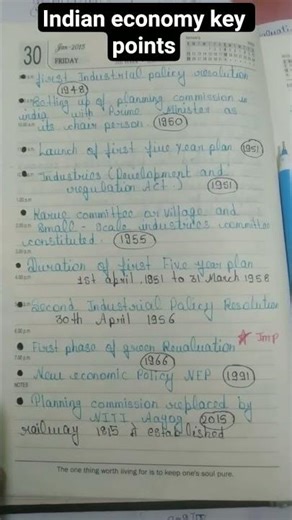 Indian economy key
points
30
Jan-2015
FRIDAY
January
First Industrial policy resolution
(1948)
Setting up of planning commission in
india with Prime Minister as
its chair person (1950)
Launch of first five year plan (1951)
Industries (Development and
regulation Act.) (1951)
Karve committee or village and
Small-Scale industries committee
constituted. (1955)
Duration of first Five year plan
1st april, 1951 to 31 March 1956
Second Industrial Policy Resolution
30th April 1956
First phase of green Revaluation ☆ Imp
(1966)
New economic Policy NEP (1991)
NOTES
Planning commission replaced by
NITI Aayog (2015)
railway 1815 established
The one thing worth living for is to keep one's soul pure.